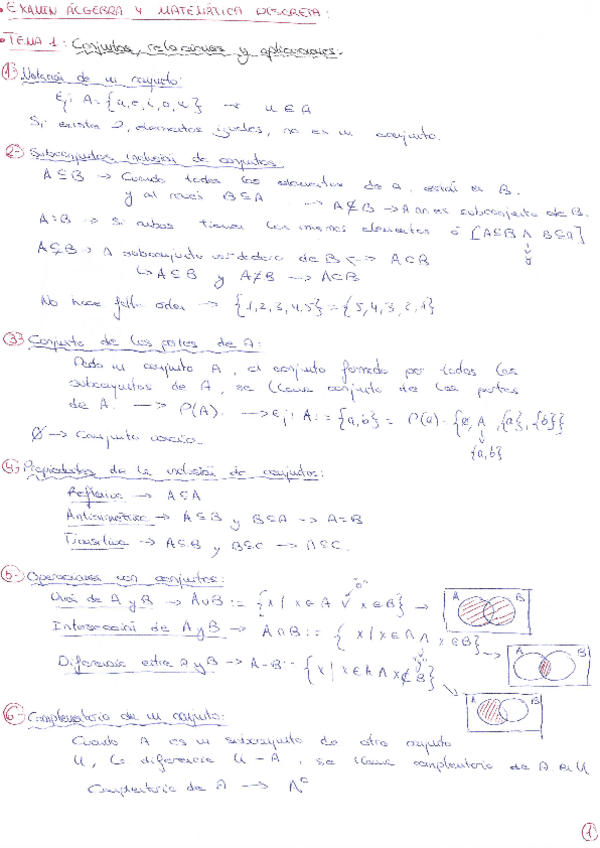 EXAMEN ÁLGEBRA Y MATEMÁTICA DISCRETA:
TEMA 1: Conjuntos, relaciones y aplicaciones.
1) Notación de un conjunto:
Ej: A = {a, e, i, o, u} → u ∈ A
Si existen 2 elementos iguales, no es un conjunto.
2- Subconjuntos, inclusión de conjuntos
A ⊆ B → Cuando todos los elementos de A están en B.
y al revés B ⊆ A → A ⊄ B → A no es subconjunto de B.
A = B → Si ambos tienen los mismos elementos ó [A ⊆ B ∧ B ⊆ A]
y
A ⊊ B → A subconjunto verdadero de B <-> A ⊂ B
↳ A ⊆ B y A ≠ B → A ⊂ B
No hace falta orden → {1, 2, 3, 4, 5} = {5, 4, 3, 2, 1}
3) Conjunto de las partes de A:
Dado un conjunto A, el conjunto formado por todos los
subconjuntos de A, se llama conjunto de las partes
de A. → P(A). → Ej: A := {a, b} = P(a) = {∅, A, {a}, {b}}
{a, b}
∅ → Conjunto vacío.
4) Propiedades de la inclusión de conjuntos:
Reflexiva → A ⊆ A
Antisimétrica → A ⊆ B y B ⊆ A → A = B
Transitiva → A ⊆ B y B ⊆ C → A ⊆ C.
5- Operaciones con conjuntos:
"o"
Unión de A y B → A ∪ B := {x / x ∈ A ∨ x ∈ B} →
A B
Intersección de A y B → A ∩ B := { x / x ∈ A ∧ x ∈ B} →
"y"
A B
Diferencia entre A y B → A - B := {x / x ∈ A ∧ x ∉ B}
A B
6- Complementario de un conjunto:
Cuando A es un subconjunto de otro conjunto
U, la diferencia U - A, se llama complementario de A en U
Complementario de A → Aᶜ
1